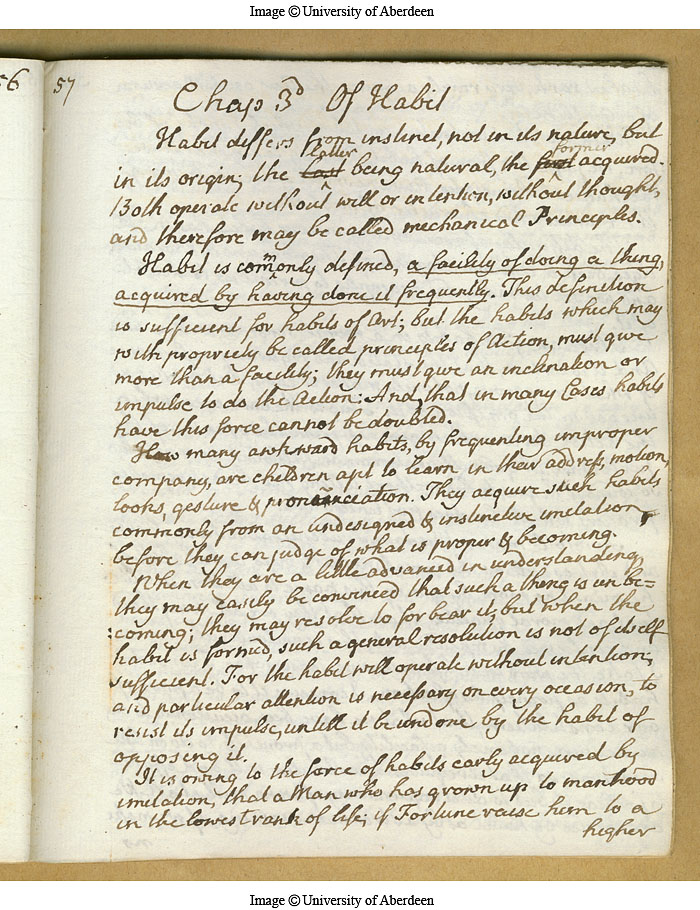 Image © University of Aberdeen
56
57
Chap 3d Of Habit
Habit differs from instinct, not in its nature, but
latter former
in its origin; the last being natural, the first acquired.
Both operate without will or intention, without thought,
and therefore may be called mechanical Principles.
Habit is commonly defined, a facility of doing a thing,
acquired by having done it frequently. This definition
is sufficient for habits of Art; but the habits which may
with propriety be called principles of Action, must give
more than a facility; they must give an inclination or
impulse to do the Action: And, that in many Cases habits
have this force cannot be doubted.
How many awkward habits, by frequenting improper
company, are children apt to learn in their address, motion,
looks, gesture & pronunciation. They acquire such habits
commonly from an undesigned & instinctive imitation
before they can judge of what is proper & becoming.
When they are a little advanced in understanding,
they may easily be convinced that such a thing is un be=
:coming; they may resolve to forbear it; but when the
habit is formed, such a general resolution is not of itself
sufficient. For the habit will operate without intention;
and particular attention is necessary on every occasion, to
resist its impulse, untill it be undone by the habit of
opposing it.
It is owing to the force of habits early acquired by
imitation, that a Man who has grown up to manhood
in the lowest rank of life, if Fortune raise him to a
higher
Image © University of Aberdeen